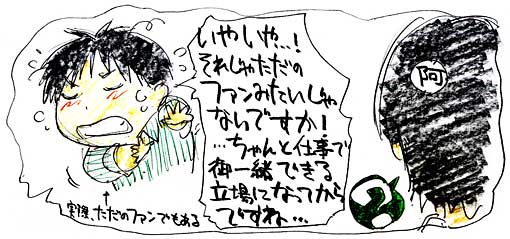 いやいや…!
それじゃただの
ファンみたいじゃ
ないですか!
…ちゃんと仕事で
御一緒できる
立場になってから
ですね…
阿
実際、ただのファンでもある